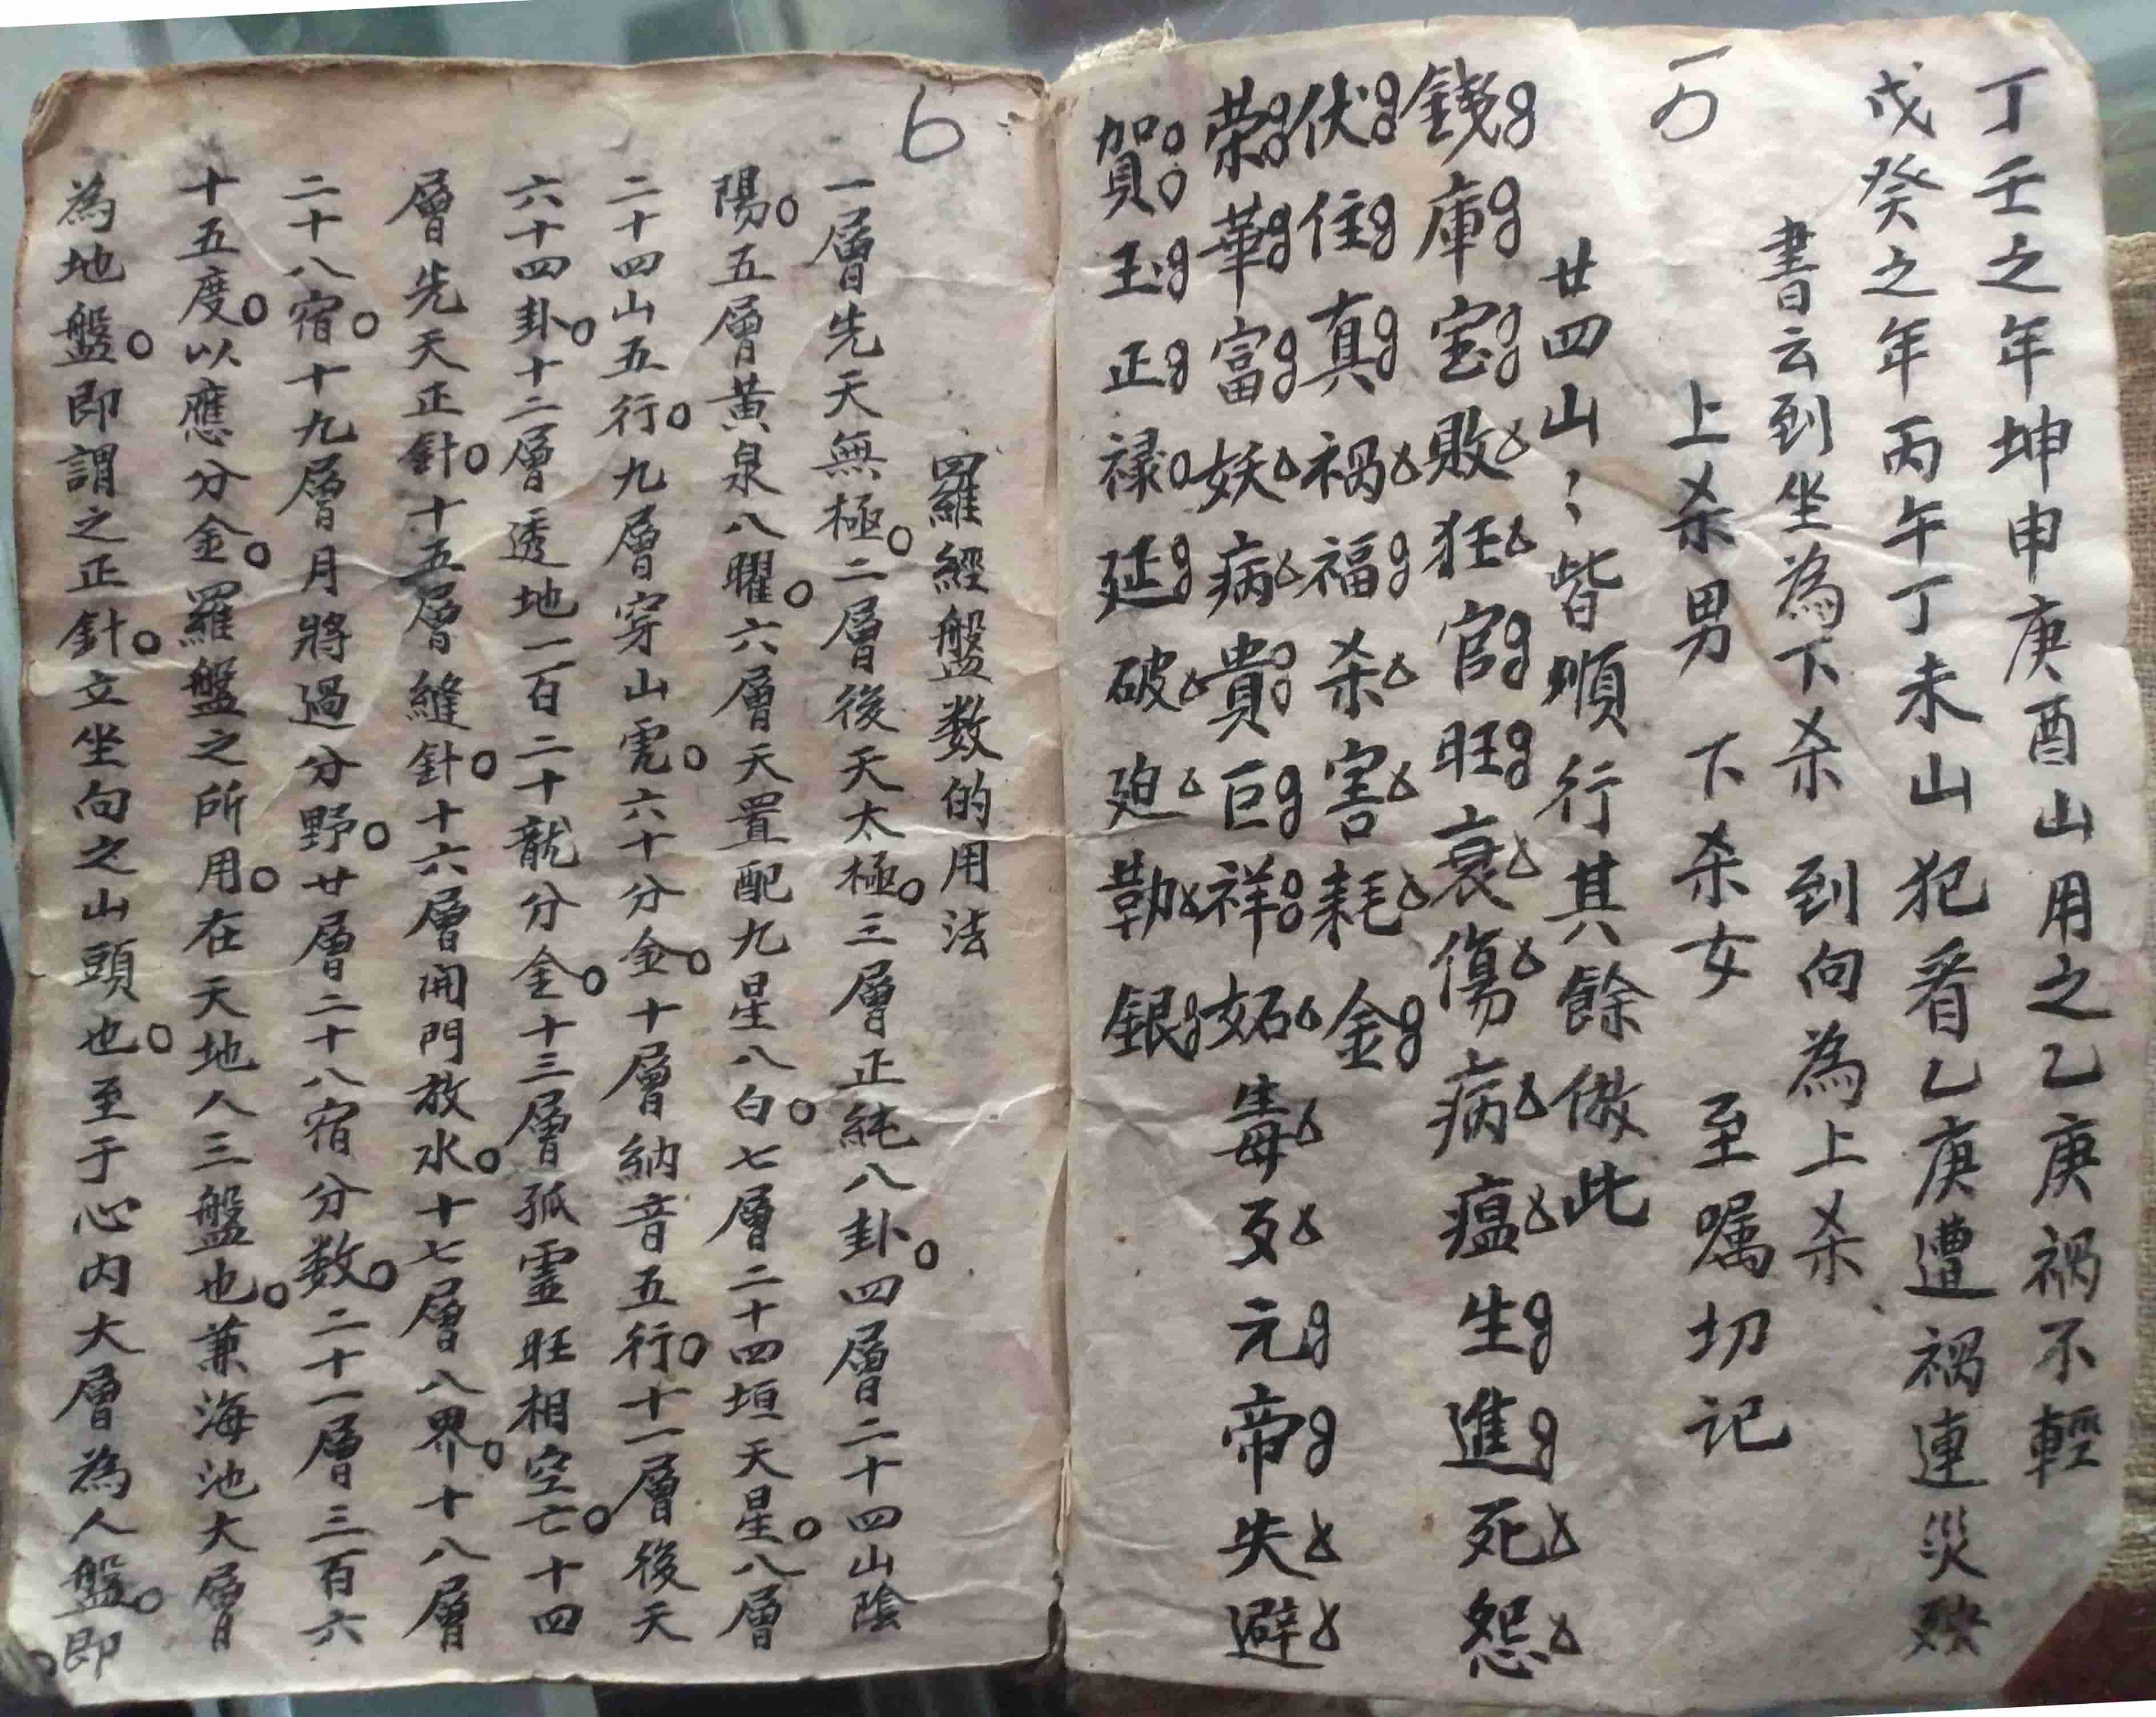 丁壬之年坤申庚酉山用之乙庚禍不輕
戊癸之年丙午丁未山犯着乙庚遭禍連災殃
書云到坐為下杀 到向為上杀
上杀男 下杀女 至嘱切记
廿四山〻皆順行其餘倣此
錢庫宝敗狂官旺衰傷病瘟生進死怨
伏住真禍福杀害耗金
荣華富妖病貴巨祥妬毒歹元帝失避
賀玉正禄延破廹勒銀
6
羅經盤数的用法
一層先天無極。二層後天太極。三層正純八卦。四層二十四山陰
陽。五層黃泉八曜。六層天置配九星八白。七層二十四垣天星。八層
二十四山五行。九層穿山虎。六十分金。十層納音五行。十一層後天
六十四卦。十二層透地一百二十龍分金。十三層孤靈旺相空亡。十四
層先天正針。十五層縫針。十六層開門放水。十七層八界。十八層
二十八宿。十九層月將過分野。廿層二十八宿分数。二十一層三百六
十五度。以應分金。羅盤之所用。在天地人三盤也。兼海池大層
為地盤。即謂之正針。立坐向之山頭也。至于心内大層為人盤。即